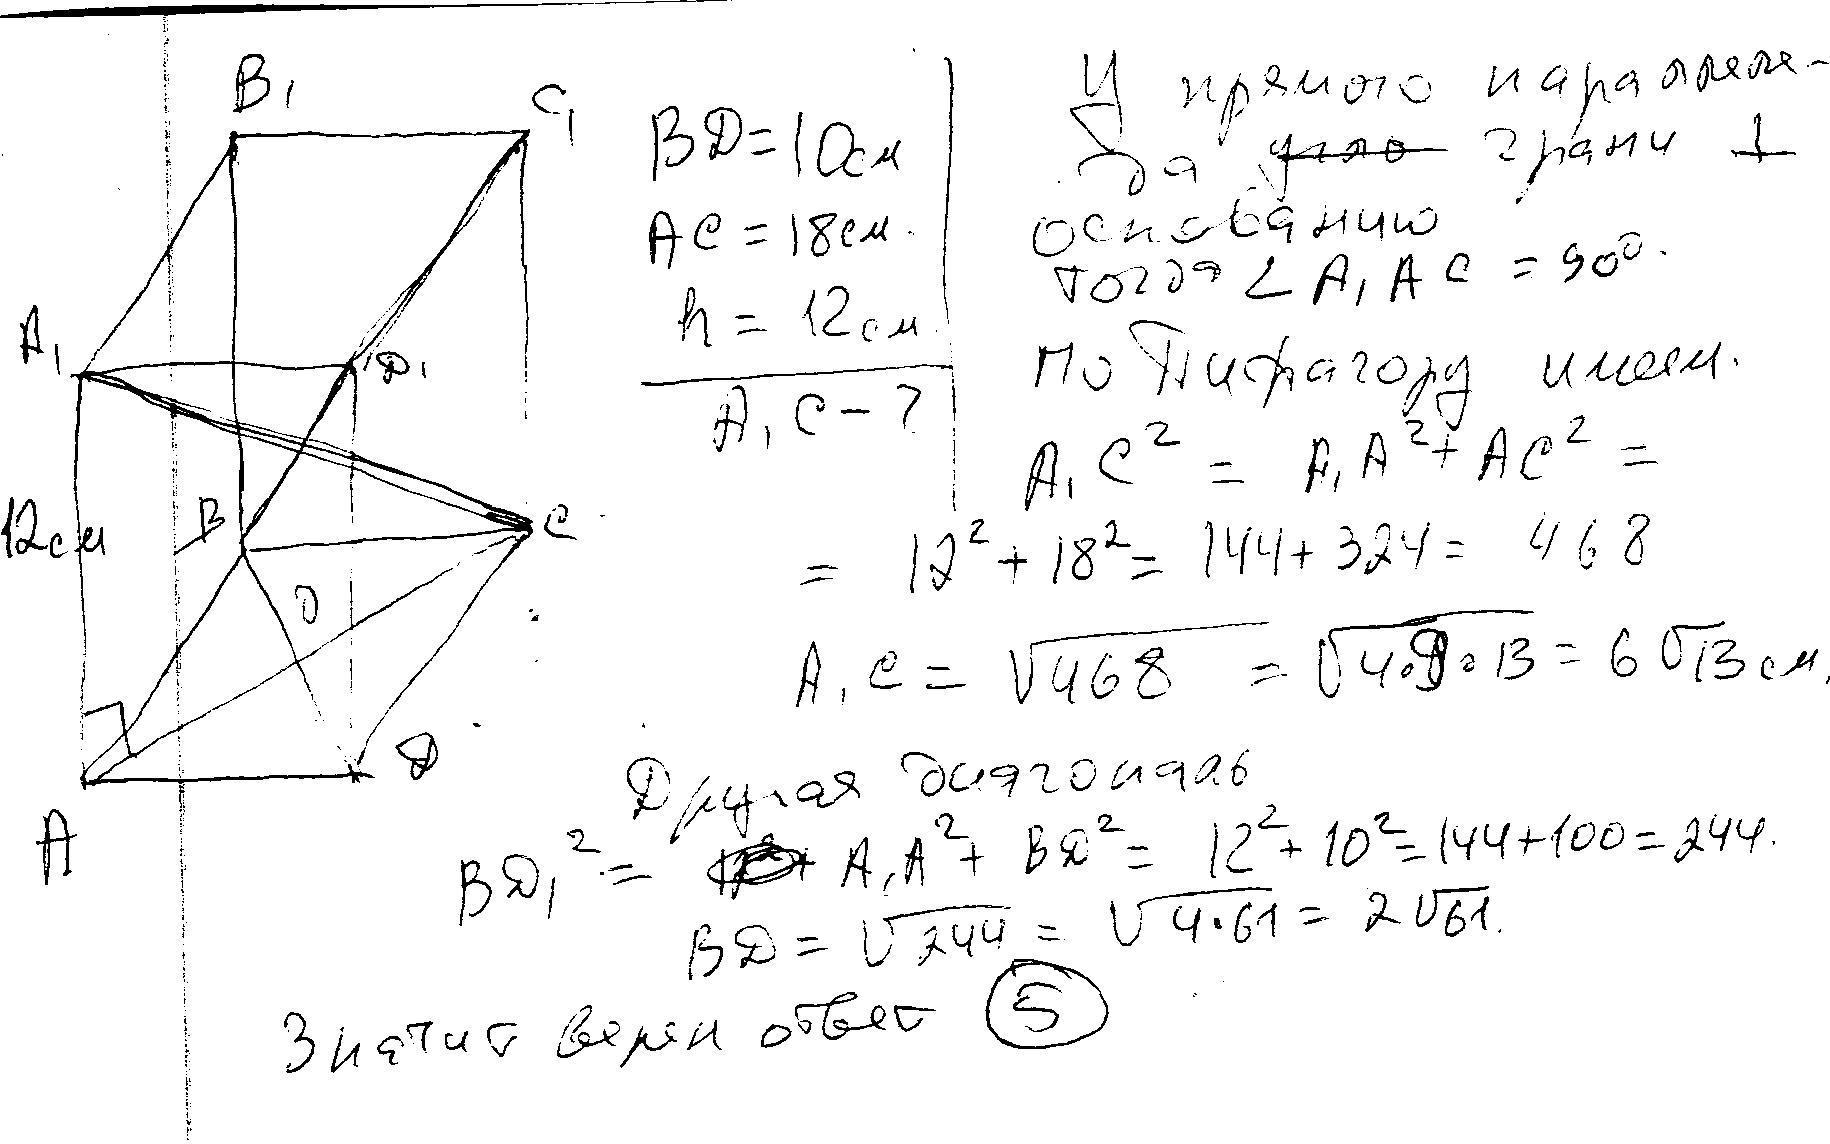 B₁
C₁
A₁
D₁
12см
B
C
O
A
D
BD=10см
AC=18см.
h=12см
A₁C-?
У прямого параллеле-
да грани ⊥
основанию
тогда ∠A₁AC=90°.
По Пифагору имеем.
A₁C²=A₁A²+AC²=
=12²+18²=144+324=468
A₁C=√468=√4·9·13=6√13см.
Другая диагональ
BD₁²=A₁A²+BD²=12²+10²=144+100=244.
BD=√244=√4·61=2√61.
Значит верен ответ 5